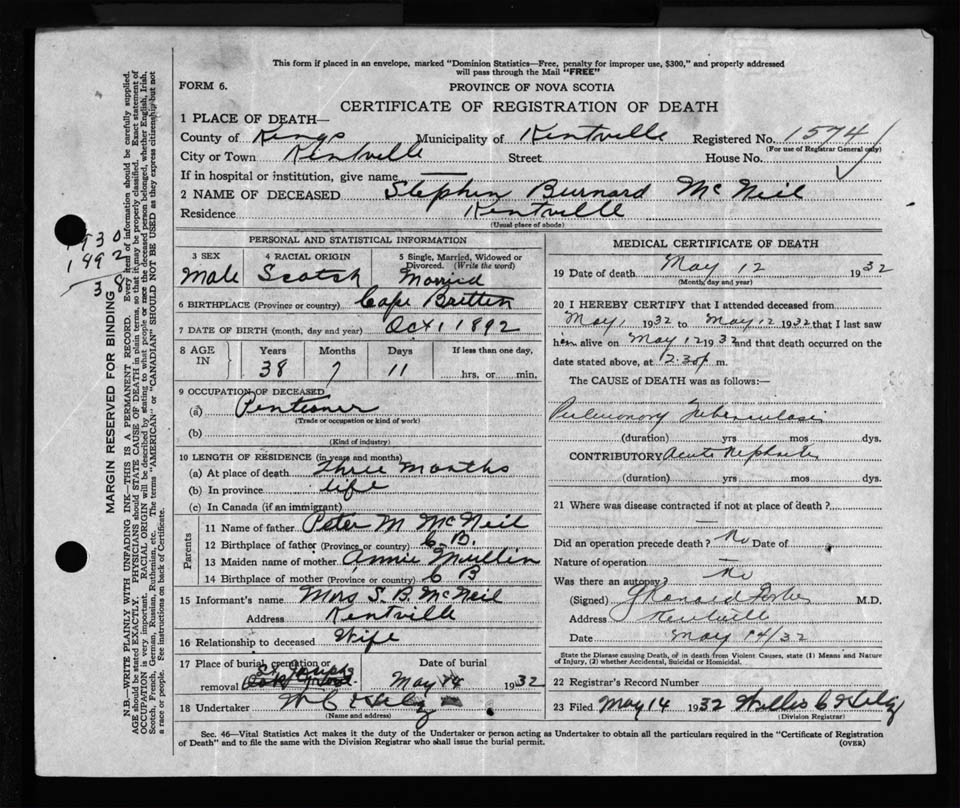 This form if placed in an envelope, marked "Dominion Statistics—Free, penalty for improper use, $300," and properly addressed
will pass through the Mail "FREE"
FORM 6.
PROVINCE OF NOVA SCOTIA
CERTIFICATE OF REGISTRATION OF DEATH
1 PLACE OF DEATH—
County of Kings Municipality of Kentville Registered No. 1574
(For use of Registrar General only)
City or Town Kentville Street House No.
If in hospital or institution, give name —
2 NAME OF DECEASED Stephen Burnard McNeil
Residence Kentville
(Usual place of abode)
PERSONAL AND STATISTICAL INFORMATION
3 SEX 4 RACIAL ORIGIN 5 Single, Married, Widowed or Divorced. (Write the word)
Male Scotch Married
6 BIRTHPLACE (Province or country) Cape Britten
7 DATE OF BIRTH (month, day and year) Oct 1 1892
8 AGE IN Years Months Days If less than one day,
38 7 11 hrs. or min.
9 OCCUPATION OF DECEASED
(a) Pentioner
(Trade or occupation or kind of work)
(b)
(Kind of industry)
10 LENGTH OF RESIDENCE (in years and months)
(a) At place of death three months
(b) In province life
(c) In Canada (if an immigrant)
Parents
11 Name of father Peter M McNeil
12 Birthplace of father (Province or country) C. B.
13 Maiden name of mother Annie
14 Birthplace of mother (Province or country) C B
15 Informant's name Mrs S. B. McNeil
Address Kentville
16 Relationship to deceased Wife
17 Place of burial, cremation or Date of burial
removal St Josephs May 14 1932
18 Undertaker
(Name and address)
MEDICAL CERTIFICATE OF DEATH
19 Date of death May 12 1932
(Month, day and year)
20 I HEREBY CERTIFY that I attended deceased from
May 1 1932 to May 12 1932 that I last saw
him alive on May 12 1932 and that death occurred on the
date stated above, at 12.30 p m.
The CAUSE of DEATH was as follows:—
Pulmonary Tuberculosis
(duration) yrs. mos. dys.
CONTRIBUTORY Acute Nephritis
(duration) yrs. mos. dys.
21 Where was disease contracted if not at place of death?
—
Did an operation precede death? No Date of
Nature of operation —
Was there an autopsy? No
(Signed) M.D.
Address Kentville
Date May 14/32
State the Disease causing Death, or in death from Violent Causes, state (1) Means and Nature
of Injury, (2) whether Accidental, Suicidal or Homicidal.
22 Registrar's Record Number
23 Filed May 14 1932 Willis C
(Division Registrar)
Sec. 46—Vital Statistics Act makes it the duty of the Undertaker or person acting as Undertaker to obtain all the particulars required in the "Certificate of Registration
of Death" and to file the same with the Division Registrar who shall issue the burial permit. (OVER)
MARGIN RESERVED FOR BINDING
N.B.—WRITE PLAINLY WITH UNFADING INK—THIS IS A PERMANENT RECORD. Every item of information should be carefully supplied.
AGE should be stated EXACTLY. PHYSICIANS should STATE CAUSE OF DEATH in plain terms, so that it may be properly classified. Exact statement of
OCCUPATION is very important. RACIAL ORIGIN will be described by stating to what people or race the deceased person belonged, whether English, Irish,
Scotch, French, German, Russian, Ruthenian, etc. The terms "AMERICAN" or "CANADIAN" SHOULD NOT BE USED as they express citizenship but not
a race or people. See instructions on back of Certificate.
1930
1892
38